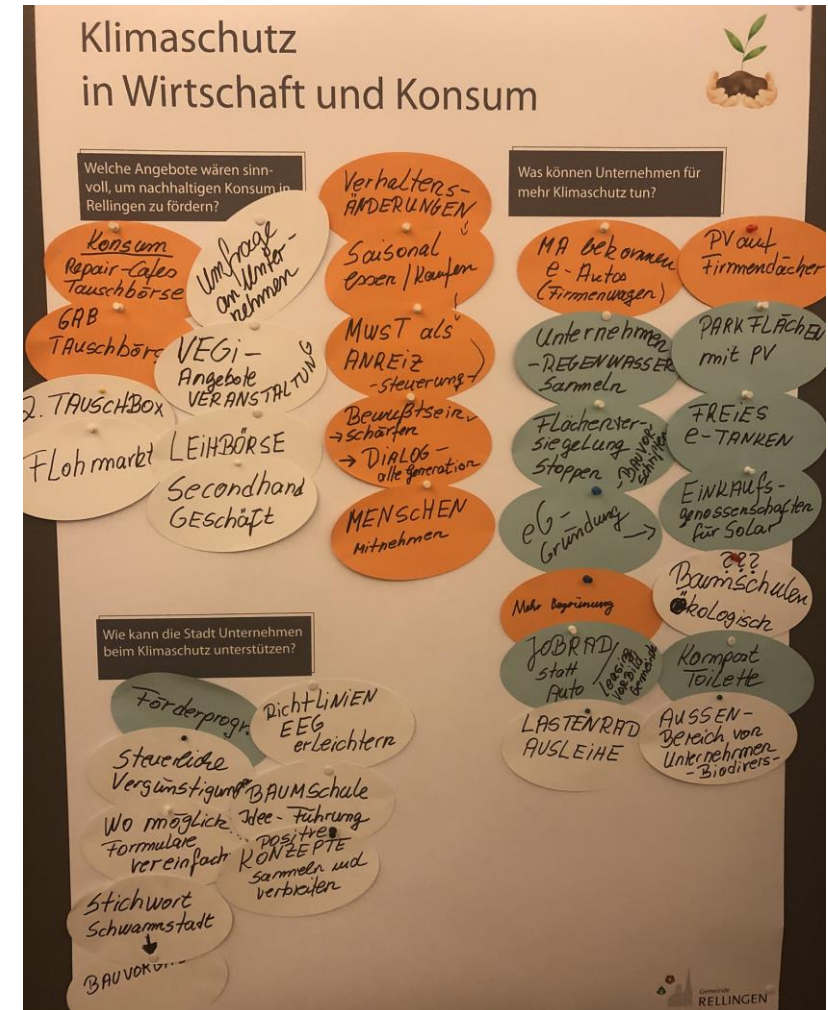 Klimaschutz
in Wirtschaft und Konsum
Welche Angebote wären sinn-
voll, um nachhaltigen Konsum in
Rellingen zu fördern?
Konsum
Repair-Cafes
Tauschbörse
GAB
TAuschbörs
2. TAUSCHBOX
FLohmarkt
Umfrage
an Unter-
nehmen
VEGi-
Angebote
VERANSTALTUNG
LEIHBÖRSE
Secondhand
GEschäft
Verhaltens-
ÄNDERUNGEN
Saisonal
essen / Kaufen
MWST als
ANREIZ
- steuerung -
Bewußtsein
→ schärfen
→ DiALOG -
alle Generation
MENSCHEN
Mitnehmen
Was können Unternehmen für
mehr Klimaschutz tun?
MA bekommen
e-Autos
(Firmenwagen)
PV auf
Firmendächer
Unternehmen
- REGENWASSER
Sammeln
PARKFLÄCHEN
mit PV
Flächenver-
siegelung
Stoppen
- BAUVOR
schriften
FREIES
e-TANKEN
eG-
Gründung →
EiNKAUfs-
genossenschaften
für Solar
Mehr Begrünung
???
Baumschulen
Ökologisch
JOBRAD/
statt
Auto
Leasing
VORBILD
Gemeinde
Kompost
Toilette
LASTENRAD
AUSLEIHE
AUSSEN-
Bereich von
Unternehmen
- Biodivers -
Wie kann die Stadt Unternehmen
beim Klimaschutz unterstützen?
Förderprogr.
RichtLiNiEN
EEG
erleichtern
Steuerliche
Vergünstigung
BAUMSchule
Idee - Führung
Wo möglich
Formulare
vereinfach
positive
KONZEPTE
sammeln und
verbreiten
Stichwort
Schwammstadt
Gemeinde
RELLINGEN